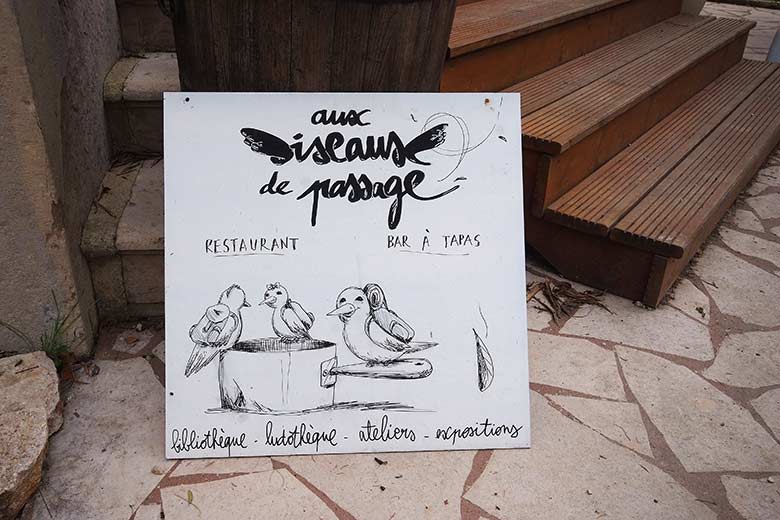 aux
oiseaux
de passage
RESTAURANT BAR À TAPAS
bibliothèque - ludothèque - ateliers - expositions